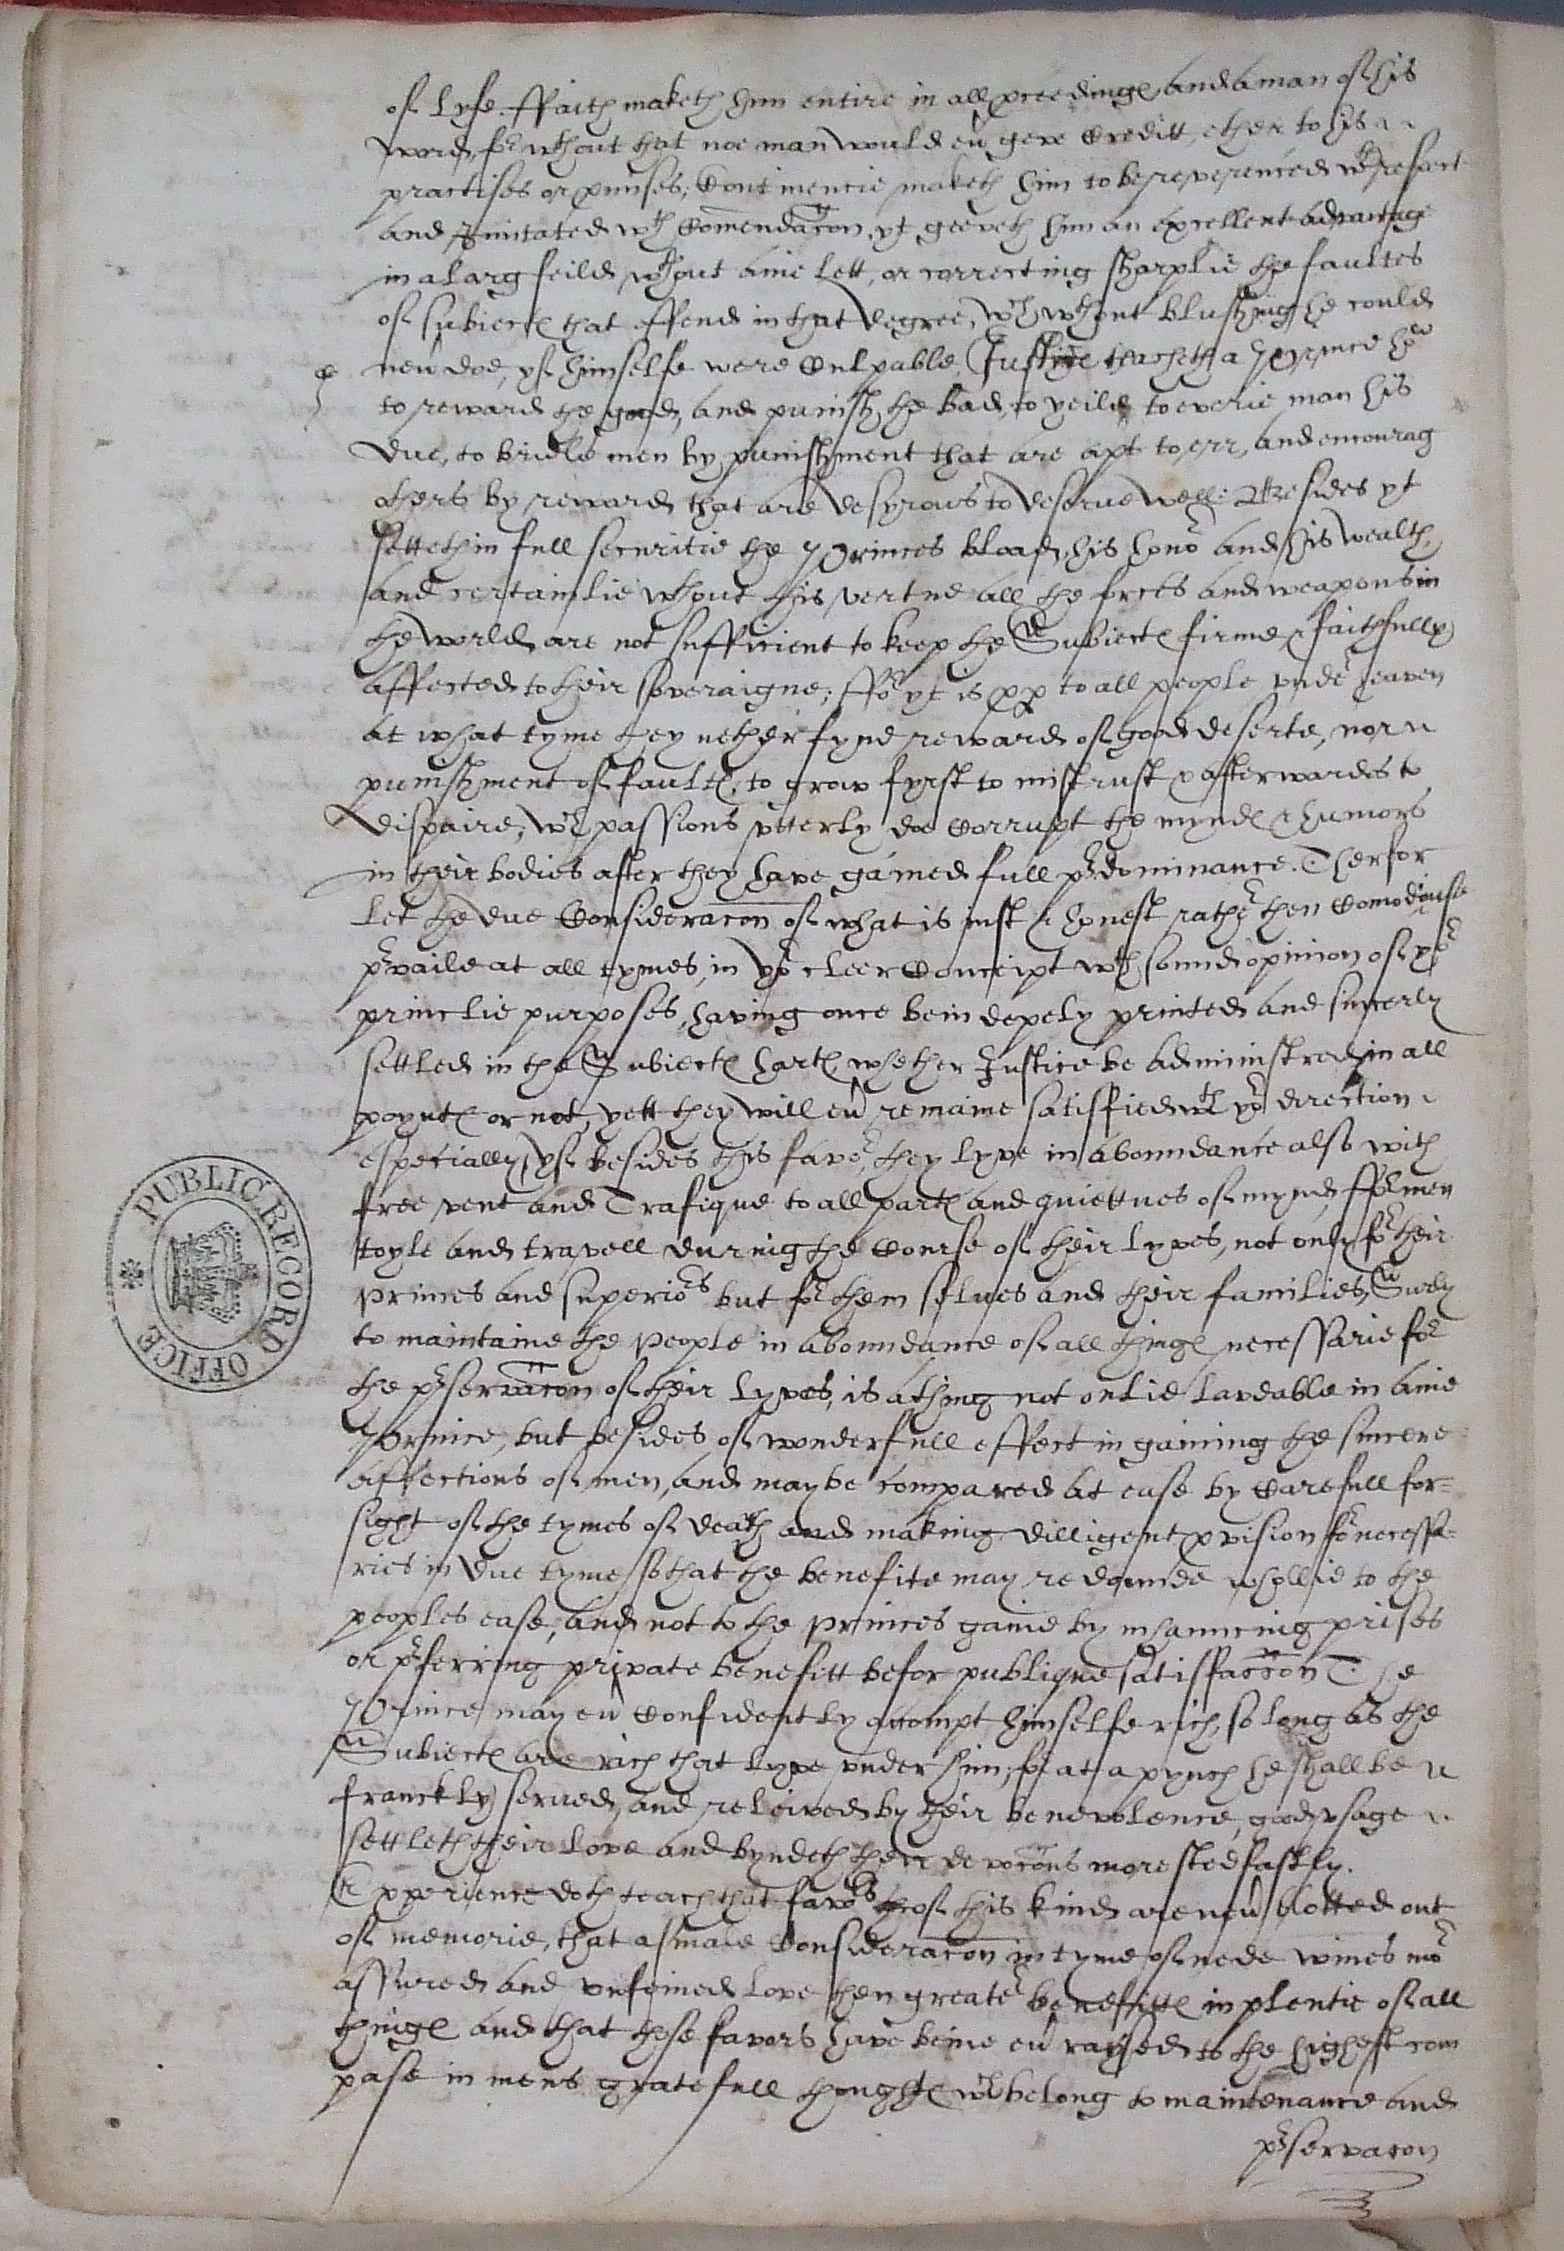 of lyfe. ffaith maketh him entire in all pceedinge, and a man of his
word, for wthout that noe man would eu geve Creditt, ether to his
practises or pmises; Continencie maketh him to be reverenced wth respect
and Imitated wth Comendacon, yt geeveth him an excellent advantage
in a larg feild, wthout anie lett, or correcting sharplie the faultes
of subiects that offend in that degree, wch wthout blushing he could
neu doe, yf himselfe were Culpable, Justice teacheth a Prince how
to reward the good, and punish the bad, to yeild to everie man his
due, to bridle men by punishment that are apt to err, and encourag
thers by reward that are desyrous to deserue well: Besides yt
setteth in full securitie the Princes blood, his honor and his wealth,
and certainlie wthout this vertue all the forces and weapons in
the world are not sufficient to keep the Subiects firme & faithfully
affected to their soveraigne; ffor yt is pp to all people vnder heaven
at what tyme they nether fynd reward of good deserte, nor
punishment of faults, to grow fyrst to mistrust & afterwardes to
dispaire, wch passions vtterly doe Corrupt the mynds & humors
in their bodies after they have gained full predominance. Therfor
let the due Consideracon of what is iust & honest rather then Comodiouse
prvaile at all tymes, in yor cleer Conceipt wth sound opinion of yor
princlie purposes, having once bein depely printed and sincerly
settled in the Subiects harts, whether Justice be administred in all
poynts or not, yett they will eu remaine satisfied wth yor direction
especially, yf besides this favor, they lyve in aboundance also with
free vent and Trafique to all parts and quiettnes of mynd, ffor men
toyle and travell during the Course of their lyves, not only for their
Princes and superiors but for them selues and their families, Surely
to maintaine the People in aboundance of all things necessarie for
the prservacon of their lyves, is a thing not onlie laudable in anie
Prince, but besides of wonderfull effect in gaining the sincere
affections of men, and may be compared at ease by Carefull for=
sight of the tymes of death and making dilligent pvision for necessa=
ries in due tyme so that the benefite may redounde whollie to the
peoples ease, and not to the Princes gaine by inhauncing prises
or prferring private benefitt befor publique satisfaccon. The
Prince may eu Confidently accompt himselfe rich, so long as the
Subiects are rich that lyve vnder him; for at a pynch he shall be
franckly served, and releived by their benevolence, good vsage
settleth their love and byndeth their devocons more stedfastly.
Experience doth teach that favors of this kind are neu blotted out
of memorie, that a smale Consideracon in tyme of nede wines mor
assured and vnfeined love then greater benefitts in plentie of all
things and that those favors have beine eu raysed to the highest com
pase in mens gratefull thoughts wch belong to maintenance and
prservacon
PUBLIC RECORD OFFICE